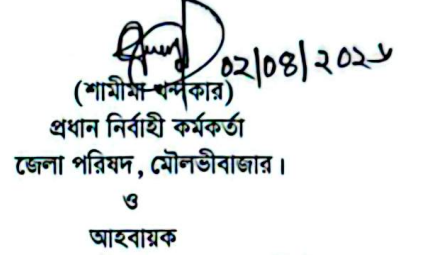 02/08/202
(শামীমা খন্দকার)
প্রধান নির্বাহী কর্মকর্তা
জেলা পরিষদ, মৌলভীবাজার।
ও
আহবায়ক